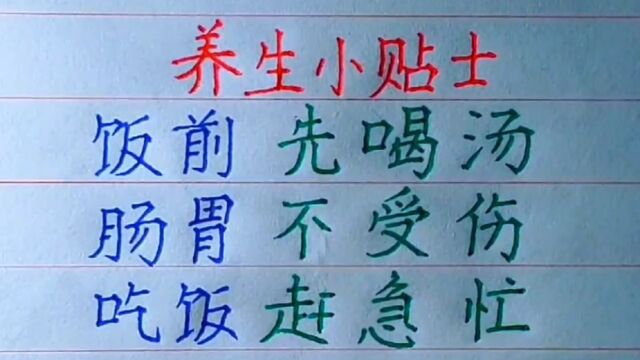 养生小贴士
饭前先喝汤
肠胃不受伤
吃饭赶急忙